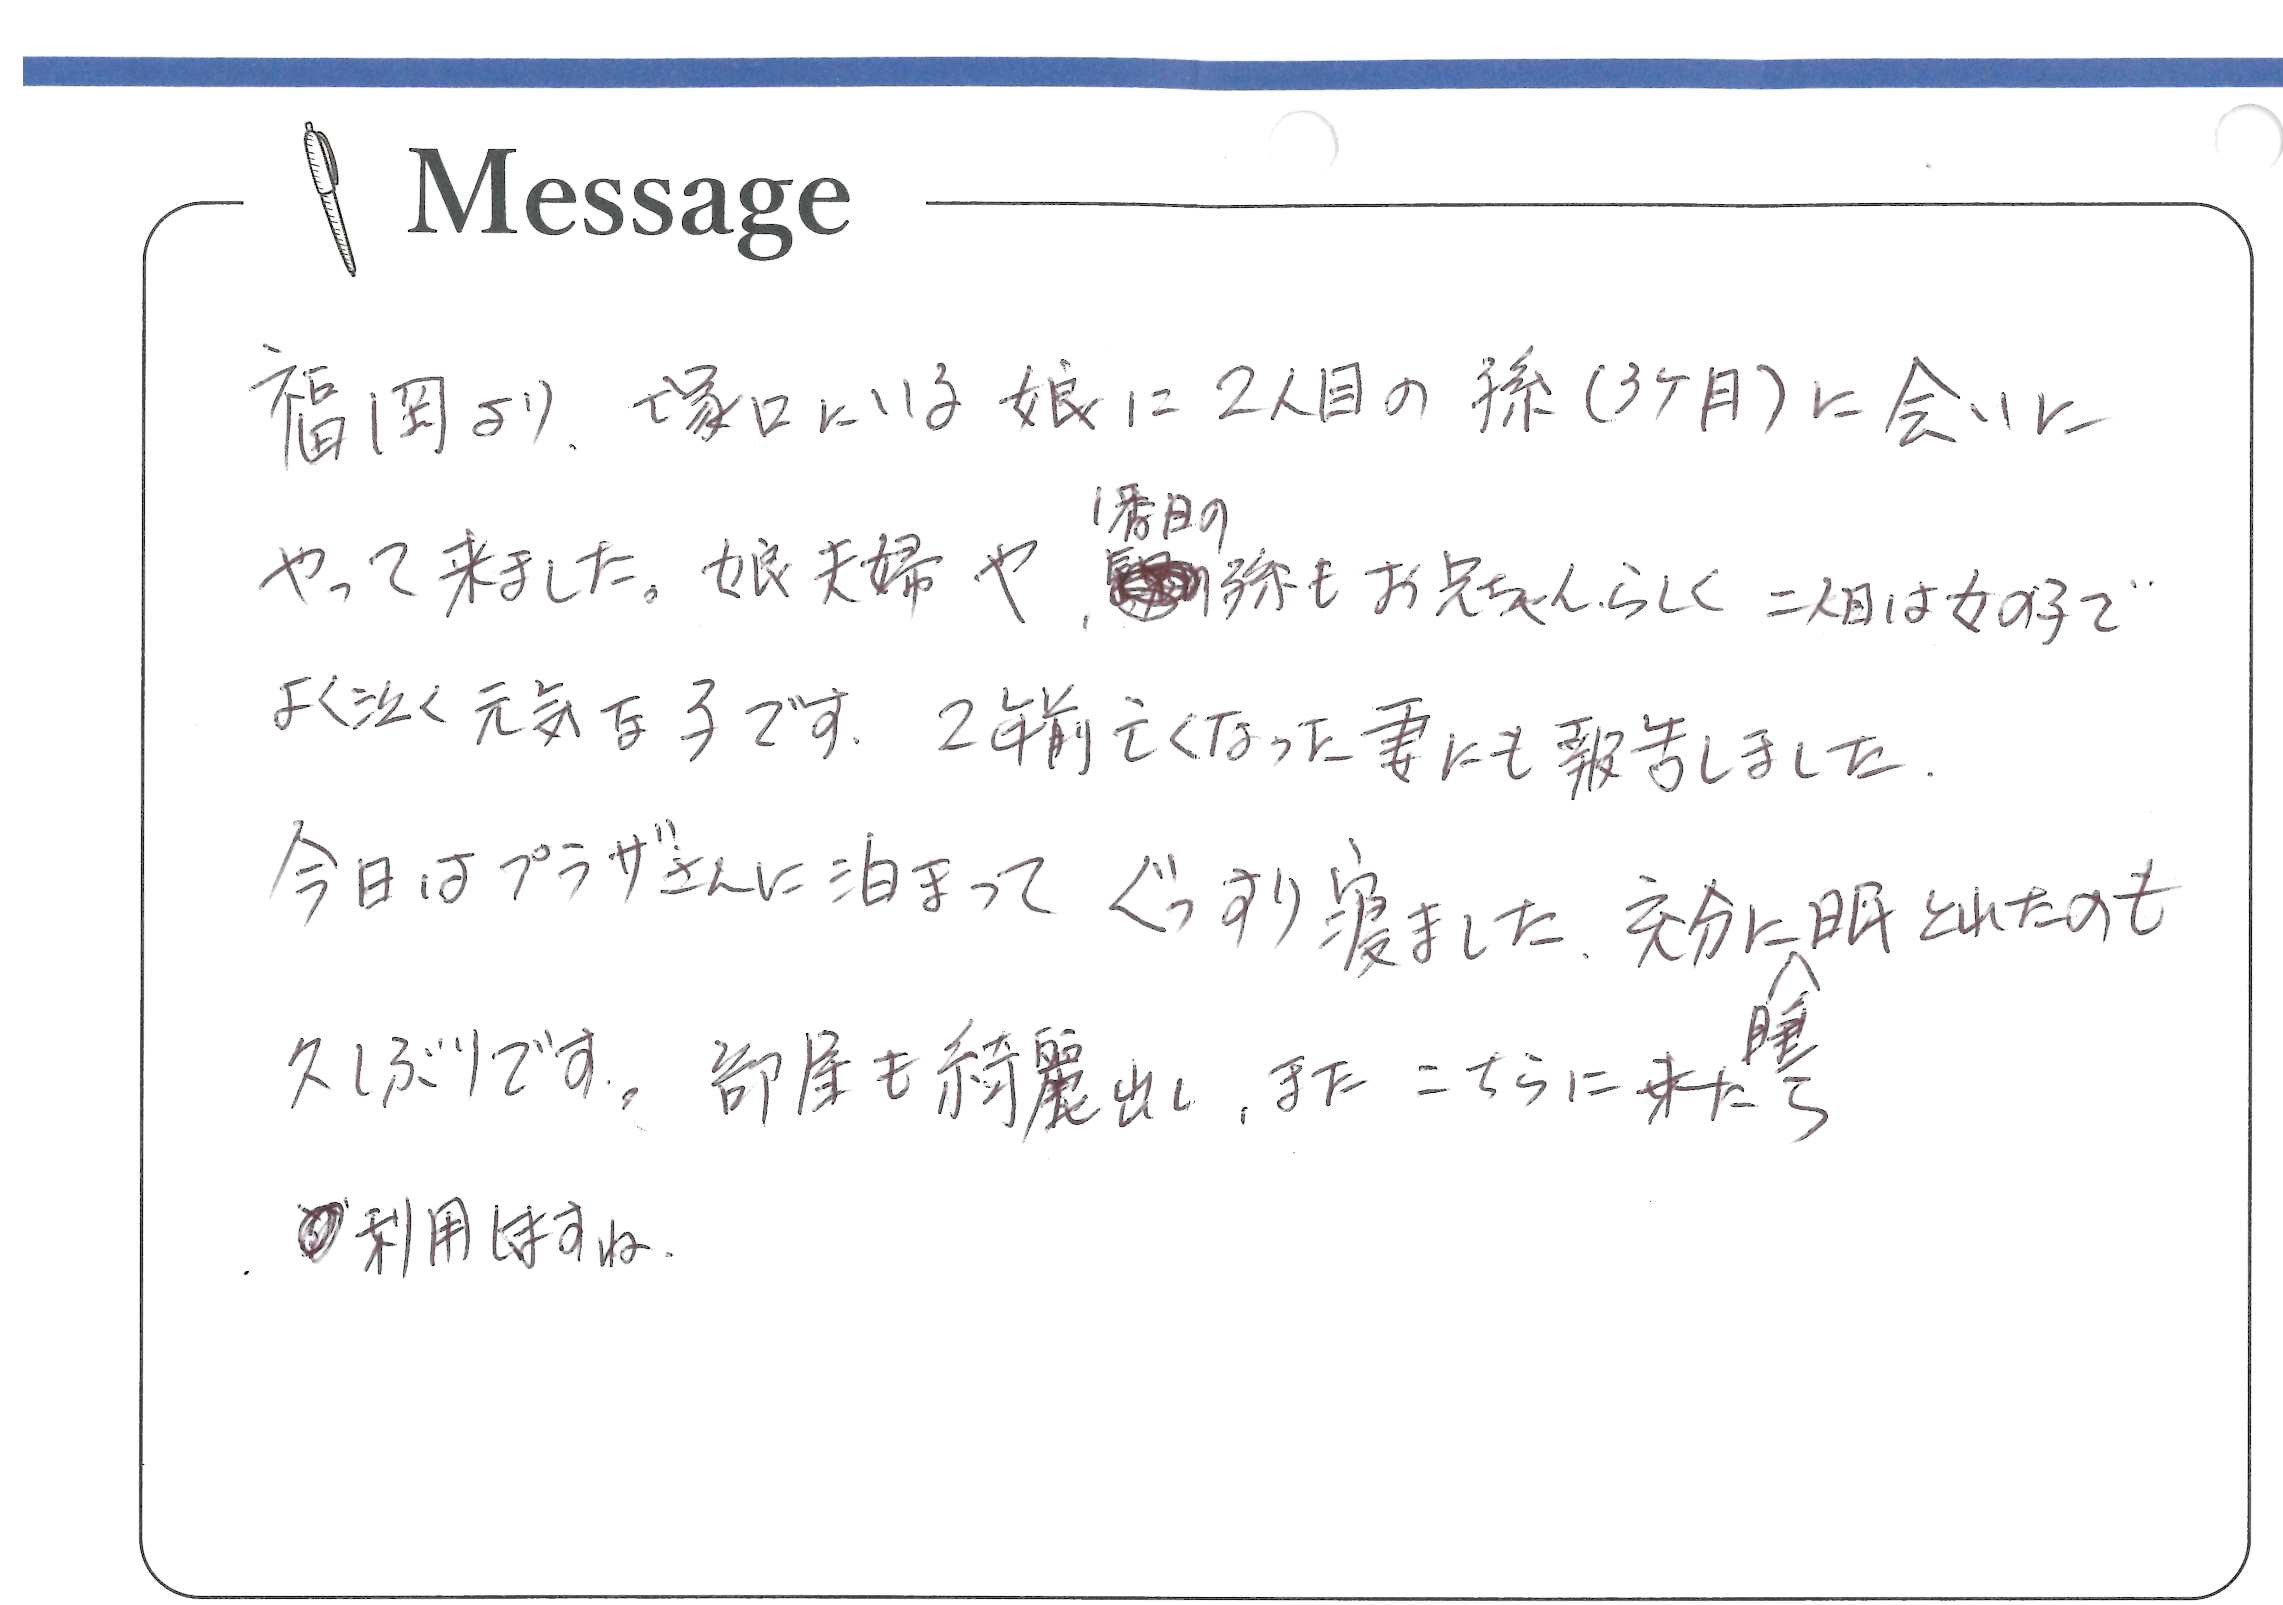 Message
福岡より、塚口にいる娘に2人目の孫(3ケ月)に会いに
やって来ました。娘夫婦や、1番目の孫もお兄ちゃんらしく二人目は女の子で
よく泣く元気な子です。2年前亡くなった妻にも報告しました。
今日はプラザさんに泊まってぐっすり寝ました。充分に睡眠とれたのも
久しぶりです。部屋も綺麗出し、またこちらに来たら
利用しますね。